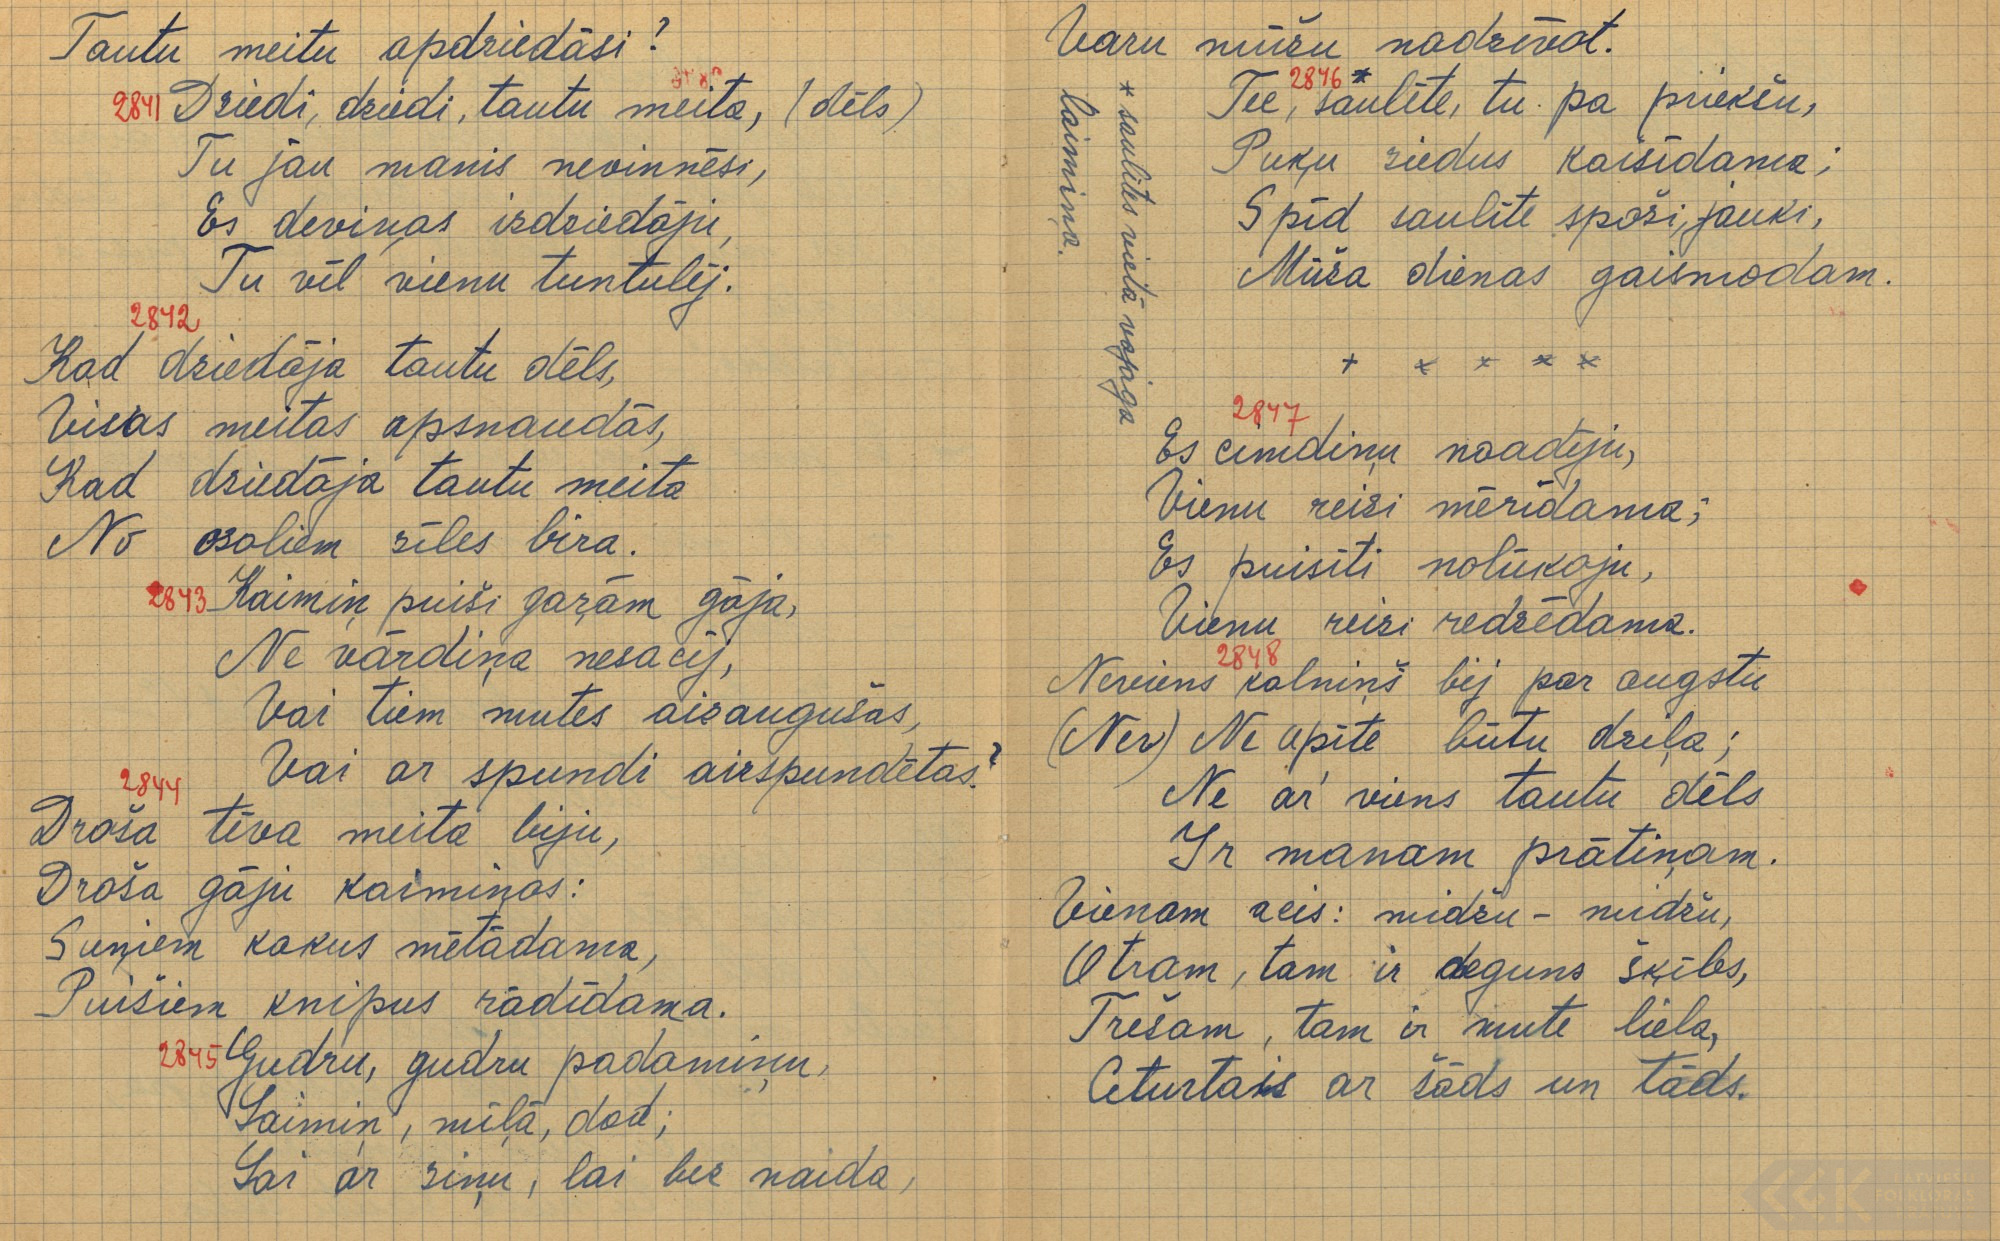 Tautu meitu apdziedāsi?
2841 Dziedi, dziedi, tautu meita, (dēls)
Tu jau manis nevinnēsi,
Es deviņas izdziedāju,
Tu vēl vienu tuntulēj.
2842
Kad dziedāja tautu dēls,
Visas meitas apsnaudās,
Kad dziedāja tautu meita
No ozoliem zīles bira.
2843 Kaimiņ puiši gaŗām gāja,
Ne vārdiņa nesacīj,
Vai tiem mutes aizaugušas,
Vai ar spundi aizspundētas?
2844
Droša tēva meita biju,
Droša gāju kaimiņos:
Suņiem kokus mētādama,
Puišiem knipus rādīdama.
2845 Gudru, gudru padomiņu,
Laimiņ, mīļā, dod;
Lai ar ziņu, lai bez naida,
Varu mūžu nodzīvot.
2846 *
Tec, saulīte, tu pa priekšu,
Puķu ziedus kaisīdama;
Spīd saulīte spoži, jauki,
Mūža dienas gaismodam.
* saulītes vietā vajaga
laimiņa.
+ x x x x
2847
Es cimdiņu noadīju,
Vienu reizi mērīdama;
Es puisīti nolūkoju,
Vienu reizi redzēdama.
2848
Neviens kalniņš bij par augstu
(Nev) Ne upīte būtu dziļa;
Ne ar' viens tautu dēls
Ir manam prātiņam.
Vienam acis: midžu - midžu,
Otram, tam ir deguns šķībs,
Trešam, tam ir mute liela,
Ceturtais ar šāds un tāds.
LATVIEŠU
FOLKLORAS